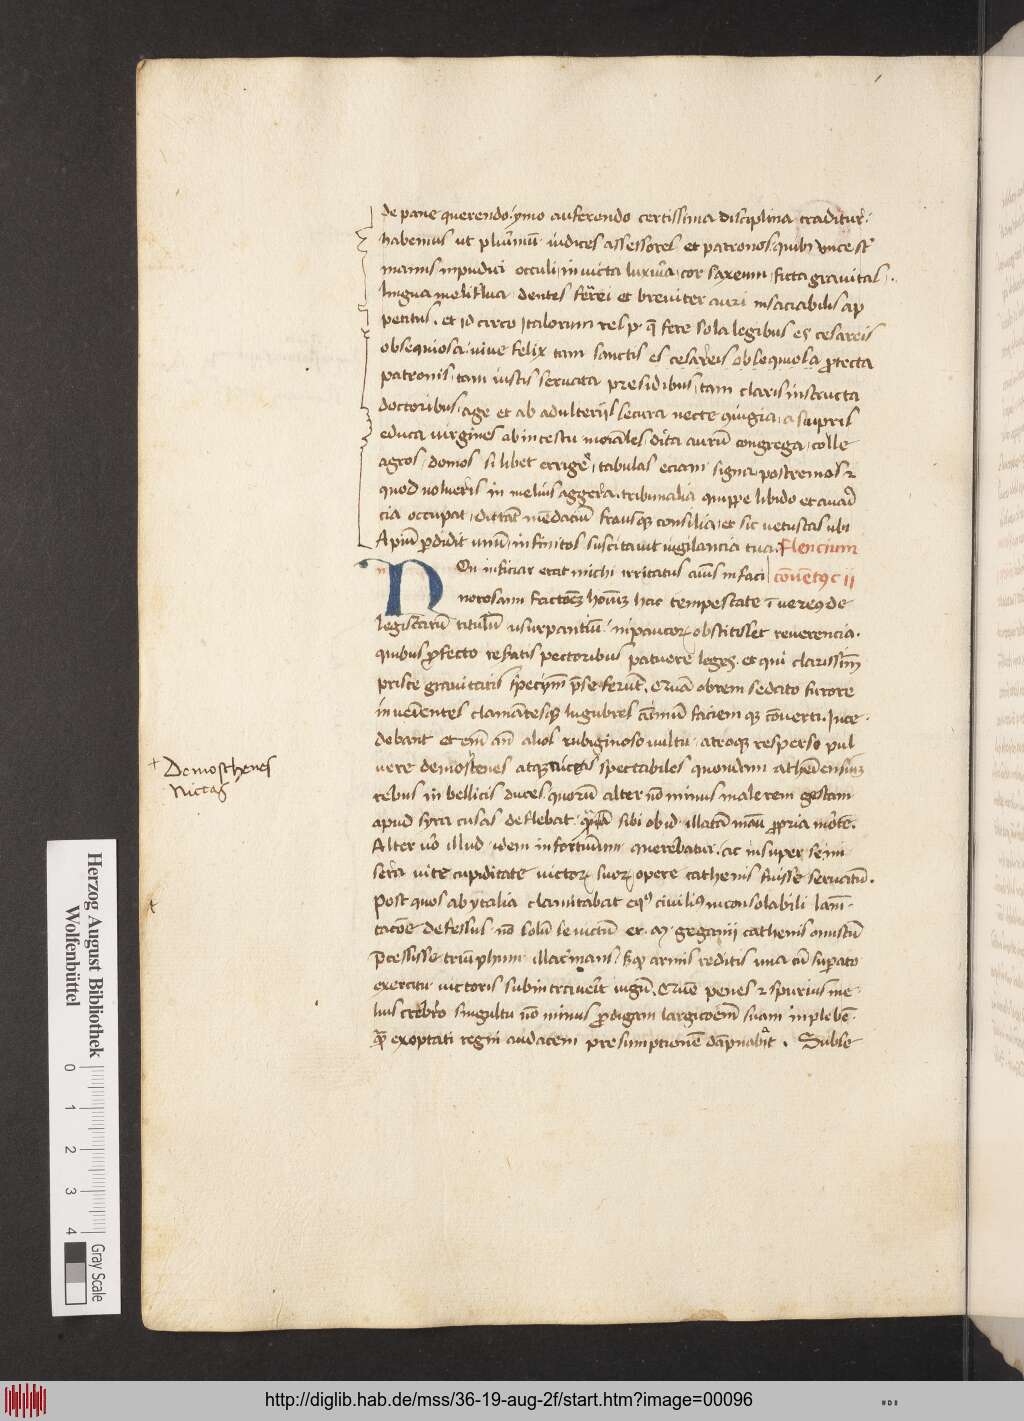 de pane querendo: ymo auferendo certissima disciplina traditur:
habemus ut plurimũ iudices assessores et patronos quibꝫ vncę st̃
manus inpudici occuli, inuicta luxuria, cor saxeum, ficta grauitas,
lingua meliflua, dentes ferrei et breuiter auri insaciabilis ap
petitus. et id circo Italorum res p. q̃ fere sola legibus es cesareis
obsequiosa: viue felix tam sanctis es cesareis obsequiosa ꝓtecta
patronis, tam iustis seruata presidibus, tam claris instructa
doctoribus, age et ab adulterijs secura necte ꝯiugia, a stupris
educa uirgines ab incestu moniales, dita aurũ congrega, colle
agros, domos si libet errige, tabulas eciam signa, postremos ⁊
quod volueris in melius aggera, tribunalia quippe libido et auari
cia occupat, dictat mẽdaciũ frausqꝫ consilia, et sic vetustas ubi
Apiũ ꝓdidit unũ, infinitos suscitauit uigilancia tua. Flencium
Non inficiar erat michi irritatus aĩus in faci conuetꝯ c ii
norosam factorꝫ hoĩm hac tempestate ĩ uereq̃ de
legistarũ titulũ usurpantiũ, ni paucorꝫ obstitisset reuerencia.
quibus ꝓfecto resatis pectoribus patuere leges. et qui clarissim
prisce grauitatis specim p̃se ferũt. Quã obrem sedato furore
inuenientes clamãtesqꝫ lugubres aĩmũ faciem qꝫ cõuerti. Ince
debant et em̃ añ alios rubiginoso uultu atroqꝫ resperso pul
uere demostenes atqꝫ nicetas spectabiles quondam atheniensium
rebus in bellicis duces. quorũ alter nõ minus male rem gestam
apud syra cusas deflebat qꝫ ĩtã sibi ob id illatã manu ꝓpria mortẽ.
Alter uo illud idem infortunium querebatur. ac insuper se mi
sera uite cupiditate victorꝫ suorꝫ opere cathenis fuisse seruatũ.
Post quos ab ytalia clamitabat eqꝰ ciuiliꝰ inconsolabili lamẽ
tacõe defessus nõ solũ se uictũ et. M. geganij cathenis onustũ
Pcessisse triũphum illacrimans, sꝫ qꝫ armis reditis una cũ supato
exercitu uictoris subintrauerit iugũ. Quẽ penes ⁊ spurius me
lius crebro singultu nõ minus ꝓdigam largicoem suam in plebẽ
qꝫ exoptati regni audacem presumptionẽ dãpnabat. Suble
+ Demosthenes
Nictas
Herzog August Bibliothek
Wolfenbüttel
0 1 2 3 4
Gray Scale
http://diglib.hab.de/mss/36-19-aug-2f/start.htm?image=00096